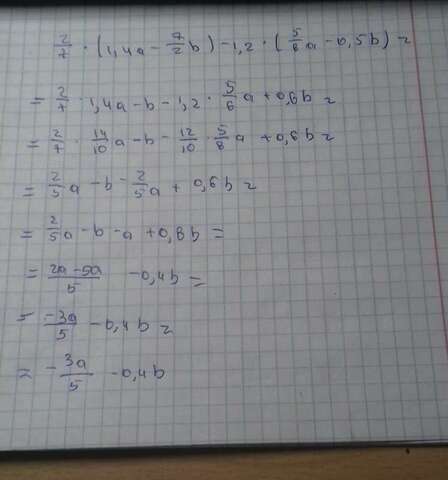 2/7 · (1,4a - 7/2 b) - 1,2 · (5/6 a - 0,5b) =
= 2/7 · 1,4a - b - 1,2 · 5/6 a + 0,6b =
= 2/7 · 14/10 a - b - 12/10 · 5/6 a + 0,6b
= 2/5 a - b - 2/5 a + 0,6b =
= 2/5 a - b - a + 0,6b =
= 2a - 5a/5 - 0,4b =
= -3a/5 - 0,4b =
= - 3a/5 - 0,4b